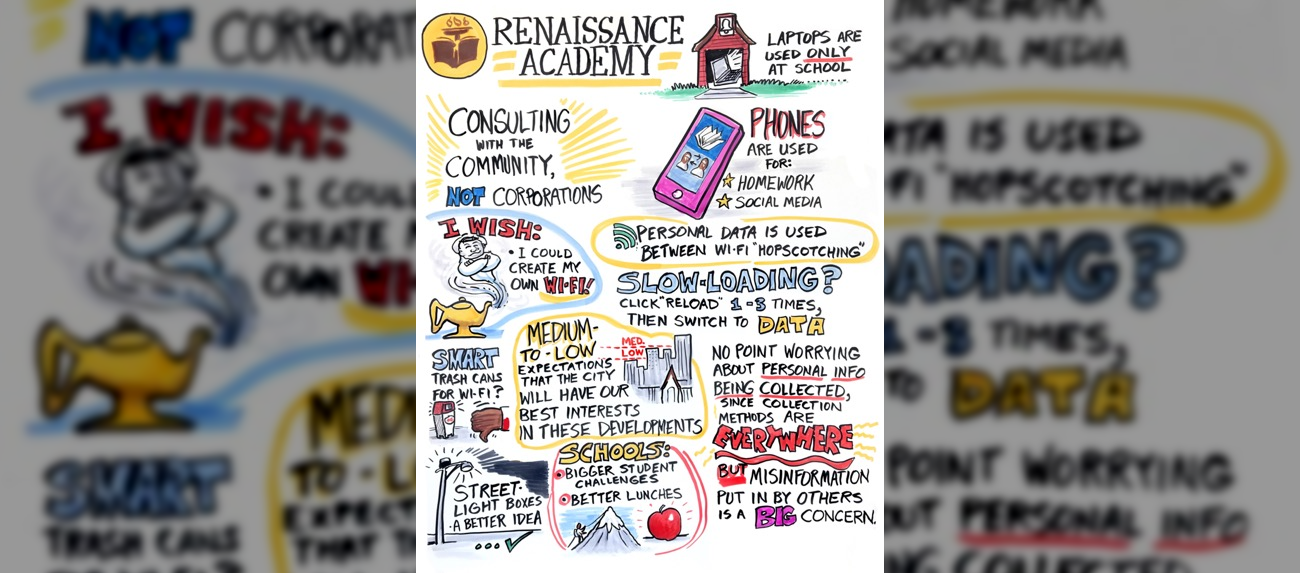 RENAISSANCE
ACADEMY
LAPTOPS ARE
USED ONLY
AT SCHOOL
CONSULTING
WITH THE
COMMUNITY,
NOT CORPORATIONS
PHONES
ARE USED
FOR:
HOMEWORK
SOCIAL MEDIA
I WISH:
• I COULD
CREATE MY
OWN WI-FI!
PERSONAL DATA IS USED
BETWEEN WI-FI "HOPSCOTCHING"
SLOW-LOADING?
CLICK "RELOAD" 1-3 TIMES,
THEN SWITCH TO DATA
SMART
TRASH CANS
FOR WI-FI?
MEDIUM-
TO-LOW
EXPECTATIONS
THAT THE CITY
WILL HAVE OUR
BEST INTERESTS
IN THESE DEVELOPMENTS
MED.
LOW
NO POINT WORRYING
ABOUT PERSONAL INFO
BEING COLLECTED,
SINCE COLLECTION
METHODS ARE
EVERYWHERE
BUT MISINFORMATION
PUT IN BY OTHERS
IS A BIG CONCERN.
STREET-
LIGHT BOXES
A BETTER IDEA
SCHOOLS:
BIGGER STUDENT
CHALLENGES
BETTER LUNCHES